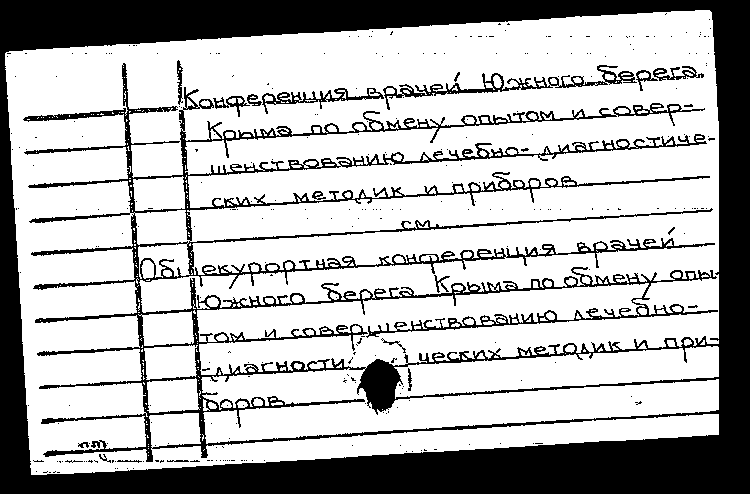 Конференция врачей Южного берега
Крыма по обмену опытом и совер-
шенствованию лечебно-диагностиче-
ских методик и приборов
см.
Общекурортная конференция врачей
Южного берега Крыма по обмену опы-
том и совершенствованию лечебно-
-диагностических методик и при-
боров.